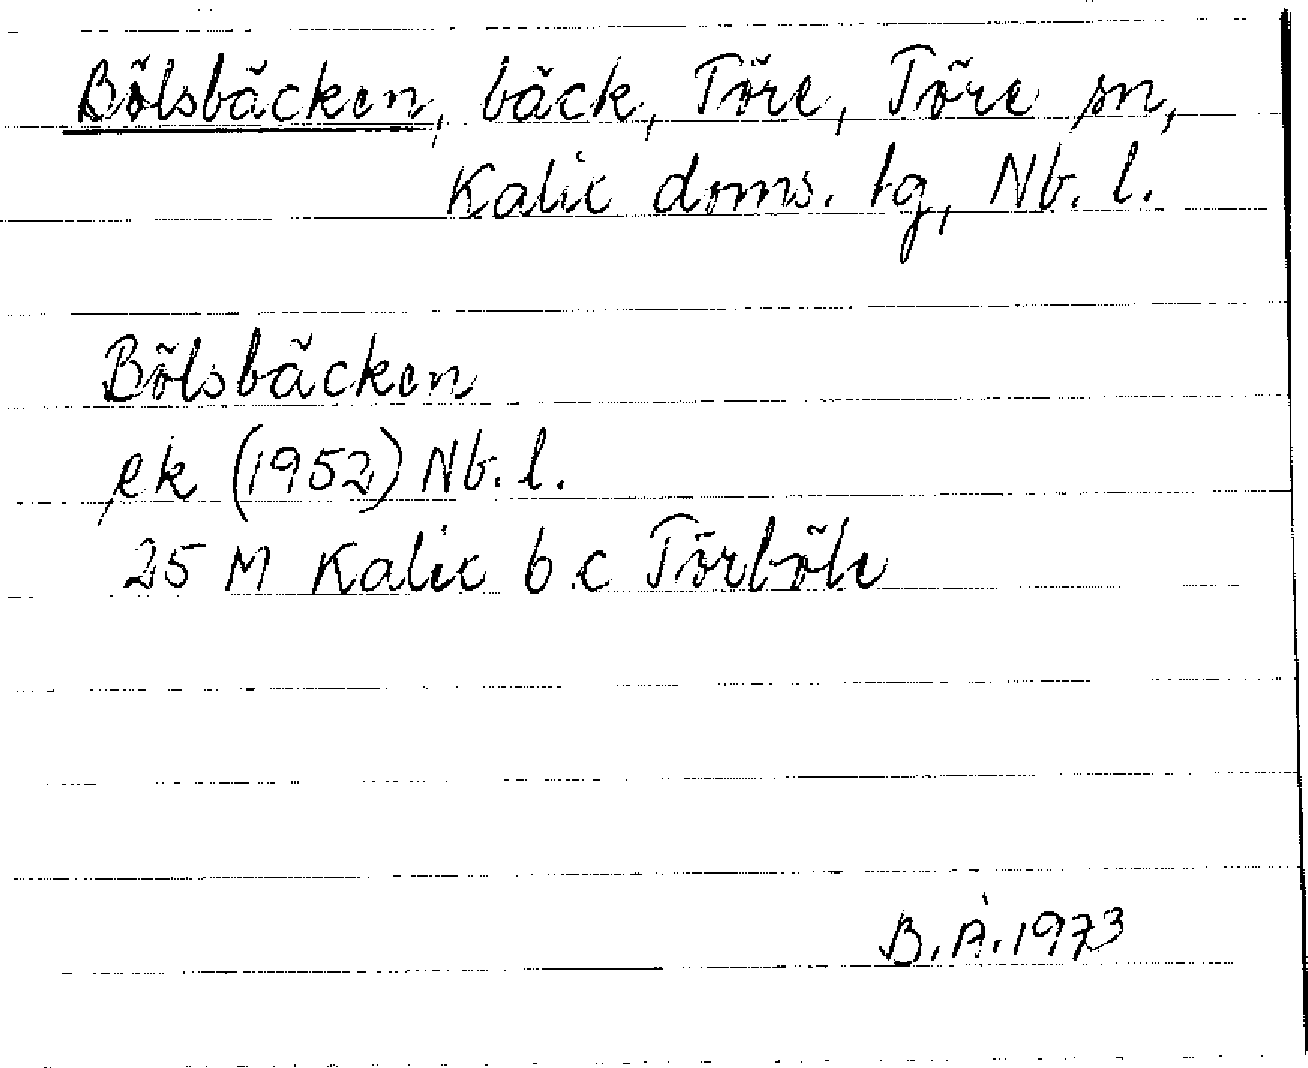 Bölsbäcken, bäck, Töre, Töre sn,
Kalix doms. tg, Nb. l.
Bölsbäcken
ek (1952) Nb. l.
25 M Kalix 6 c Törböle
B.Å.1973